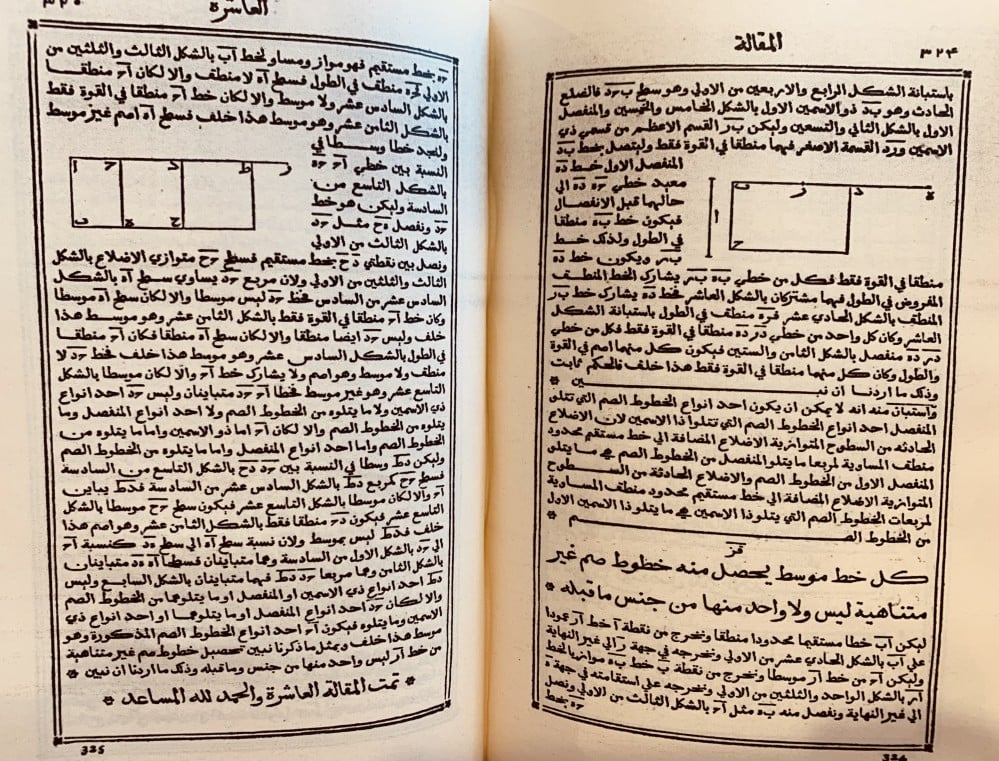 المقالة
٣٢٤
باستبانة الشكل الرابع والاربعين من الاولي وهو سطح ب رد فالضلع
الحادث وهو بد ذو الاسمين الاول بالشكل الخامس والخمسين والمنفصل
الاول بالشكل الثاني والتسعين وليكن بر القسم الاعظم من قسمي ذي
الاسمين ورد القسمة الاصغر فهما منطقا في القوة فقط وليتصل بخط بد
المنفصل الاول خط ده
معيد خطي ره ده الى
حالهما قبل الانفصال
فيكون خط به منطقا
في الطول ولذلك خط
بر ويكون خط ده
ا
ب
ز
د
ه
ح
منطقا في القوة فقط فكل من خطي به بر يشارك الخط المنطف
المفروض في الطول فهما مشتركان بالشكل العاشر فخط ده يشارك خط بر
المنطف بالشكل الحادي عشر فره منطف في الطول باستبانة الشكل
العاشر وكان كل واحد من خطي در ده منطقا في القوة فقط فكل من خطي
در ده منفصل بالشكل الثامن والستين فيكون كل منهما اصم في القوة
والطول وكان كل منهما منطقا في القوة فقط هذا خلف فالحكم ثابت
وذلك ما اردنا ان نبين *
واستبان منه انه لا يمكن ان يكون احد انواع الخطوط الصم التي تتلو
المنفصل احد انواع الخطوط الصم التي تتلو ذا الاسمين لان الاضلاع
الحادثه من السطوح المتوازية الاضلاع المضافة الى خط مستقم محدود
منطف المساوية لمربعا ما يتلو المنفصل من الخطوط الصم هي ما يتلو
المنفصل الاول من الخطوط الصم والاضلاع الحادثة من السطوح
المتوازية الاضلاع المضافة الى خط مستقيم محدود منطف المساوية
لمربعات الخطوط الصم التي يتلو ذا الاسمين هي ما يتلو ذا الاسمين الاول
من الخطوط الصم *
قز
كل خط موسط يحصل منه خطوط صم غير
متناهية ليس ولا واحد منها من جنس ما قبله *
ليكن آب خطا مستقيما محدودا منطقا ونخرج من نقطة آ خط آر عمودا
على آب بالشكل الحادي عشر من الاولي ونخرجه في جهة ر الي غير النهاية
وليكن آح من خط آر موسطا ونخرج من نقطة ب خط به موازيا لخط
آر بالشكل الواحد والثلثين من الاولي ونخرجه على استقامته في جهة ه
الي غير النهاية ونفصل منه به مثل آح بالشكل الثالث من الاولي ونصل
حه بخط
324
العاشرة
٣٢٥
حه بخط مستقيم فهو مواز ومساو لخط آب بالشكل الثالث والثلثين من
الاولي فحه منطف في الطول فسطح آه لا منطف والا لكان آح منطقا
بالشكل السادس عشر ولا موسط والا لكان خط آح منطقا في القوة فقط
بالشكل الثامن عشر وهو موسط هذا خلف فسطح آه اصم غير موسط
ولنجد خطا وسطا في
النسبة بين خطي آح حه
بالشكل التاسع من
السادسة وليكن هو خط
حد ونفصل هح مثل حد
بالشكل الثالث من الاولي
ا
ح
د
ط
ر
ب
ه
ح
ونصل بين نقطتي دح بخط مستقيم فسطح حح متوازي الاضلاع بالشكل
الثالث والثلثين من الاولي ولان مربع حد يساوي سطح آه بالشكل
السادس عشر من السادس فخط حد ليس موسطا والا لكان سطح آه موسطا
وكان خط آح منطقا في القوة فقط بالشكل الثامن عشر وهو موسط هذا
خلف وليس حد ايضا منطقا والا لكان سطح آه منطقا فكان آح منطقا
في الطول بالشكل السادس عشر وهو موسط هذا خلف فخط حد لا
منطف ولا موسط وهو اصم ولا يشارك خط آح والا لكان موسطا بالشكل
التاسع عشر وهو غير موسط فخطا آح حد متباينان وليس حد احد انواع
ذي الاسمين ولا ما يتلوه من الخطوط الصم ولا احد انواع المنفصل وما
يتلوه من الخطوط الصم والا لكان آح اما ذو الاسمين واما ما يتلوه من
الخطوط الصم واما احد انواع المنفصل واما ما يتلوه من الخطوط الصم
وليكن دط وسطا في النسبة بين حد دح بالشكل التاسع من السادسة
فسطح حح كمربع دط بالشكل السادس عشر من السادسة فدط يباين
آح والا لكان موسطا بالشكل التاسع عشر فيكون سطح حح موسطا بالشكل
التاسع عشر فيكون دح منطقا فقط بالشكل الثامن عشر وهو اصم هذا
خلف فدط ليس بموسط ولان نسبة سطح آه الى سطح هد كنسبة آح
الى حد بالشكل الاول من السادسة وهما متباينان فسطحا آه هد متباينان
بالشكل الثامن وهما مربعا حد دط فهما متباينان بالشكل السابع وليس
دط احد انواع ذي الاسمين او المنفصل او ما يتلوهما من الخطوط الصم
والا لكان حد احد انواع المنفصل او ما يتلوهما او احد انواع ذي
الاسمين وما يتلوه فيكون آح احد انواع الخطوط الصم المذكورة وهو
موسط هذا خلف وبمثل ما ذكرنا نبين تحصيل خطوط صم غير متناهية
من خط آر ليس واحد منها من جنس وما قبله وذلك ما اردنا ان نبين *
* تمت المقالة العاشرة والحمد لله المساعد *
325